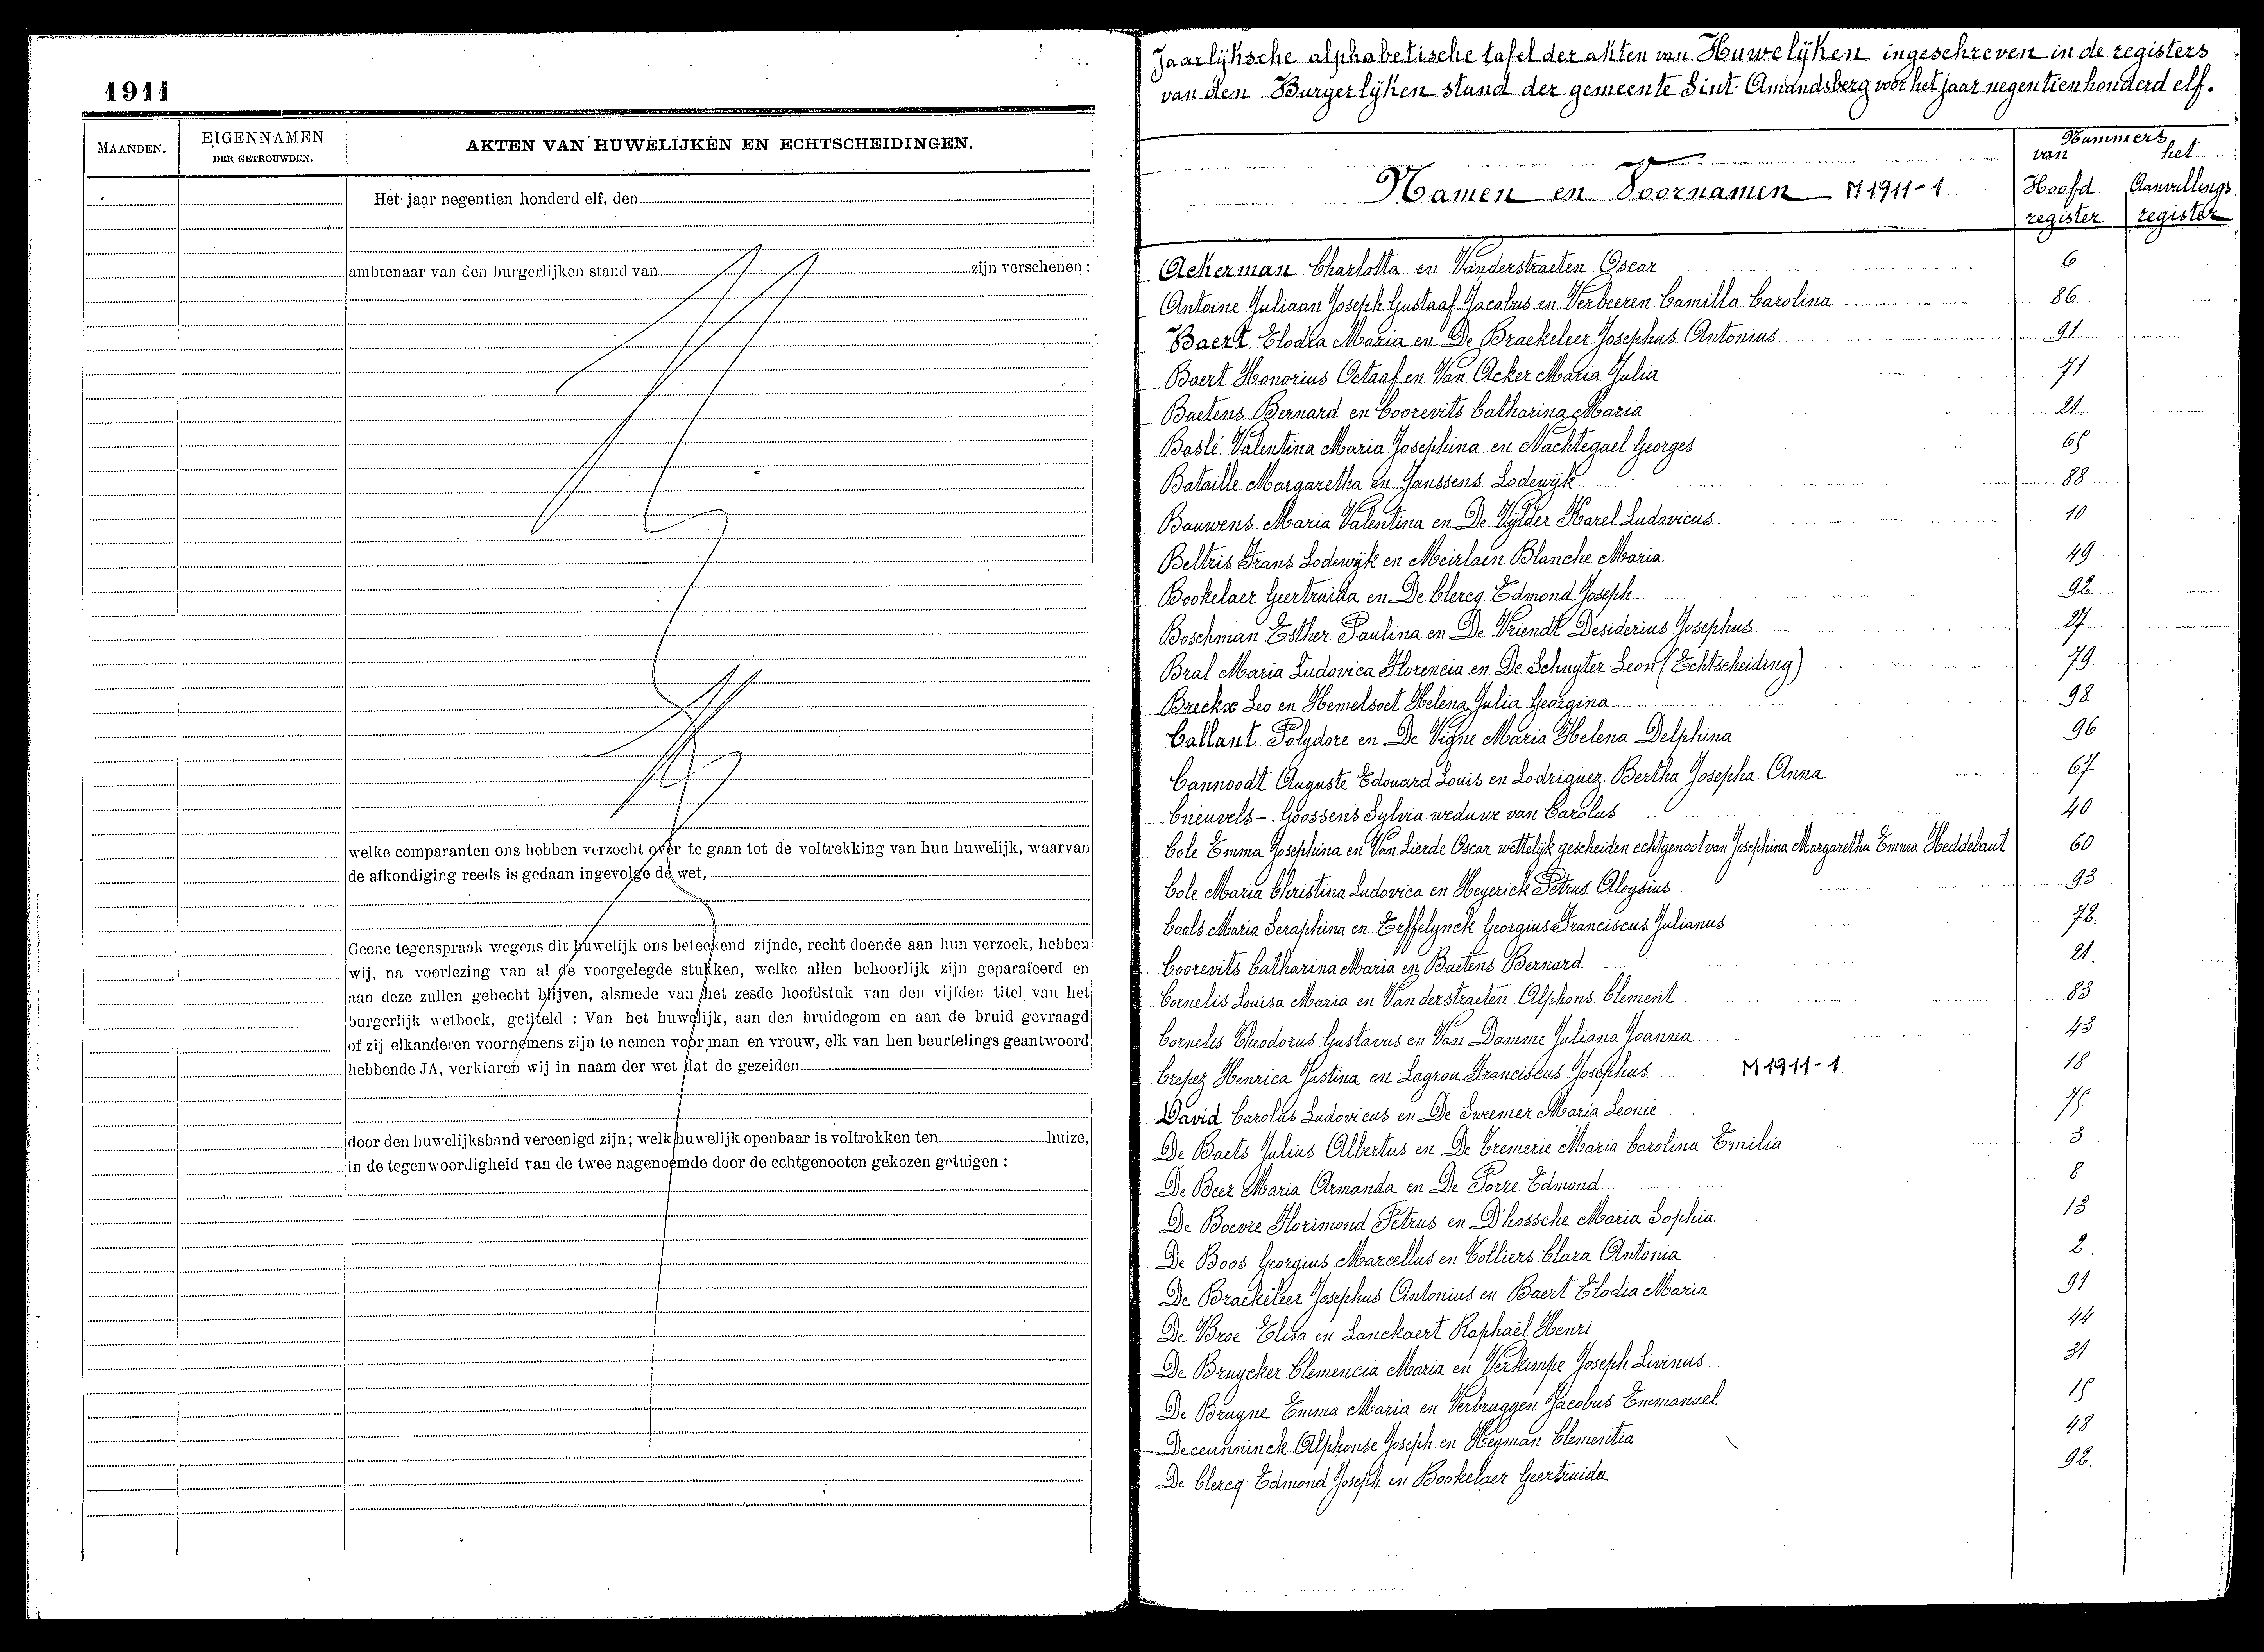 1911
MAANDEN.
EIGENNAMEN
DER GETROUWDEN.
AKTEN VAN HUWELIJKEN EN ECHTSCHEIDINGEN.
Het jaar negentien honderd elf, den
ambtenaar van den burgerlijken stand van zijn verschenen :
welke comparanten ons hebben verzocht over te gaan tot de voltrekking van hun huwelijk, waarvan
de afkondiging reeds is gedaan ingevolge de wet,
Geene tegenspraak wegens dit huwelijk ons beteekend zijnde, recht doende aan hun verzoek, hebben
wij, na voorlezing van al de voorgelegde stukken, welke allen behoorlijk zijn geparafeerd en
aan deze zullen gehecht blijven, alsmede van het zesde hoofdstuk van den vijfden titel van het
burgerlijk wetboek, getiteld : Van het huwelijk, aan den bruidegom en aan de bruid gevraagd
of zij elkanderen voornemens zijn te nemen voor man en vrouw, elk van hen beurtelings geantwoord
hebbende JA, verklaren wij in naam der wet dat de gezeiden
door den huwelijksband vereenigd zijn; welk huwelijk openbaar is voltrokken ten huize,
in de tegenwoordigheid van de twee nagenoemde door de echtgenooten gekozen getuigen :
Jaarlijksche alphabetische tafel der akten van Huwelijken ingeschreven in de registers
van den Burgerlijken stand der gemeente Sint-Amandsberg voor het jaar negentienhonderd elf.
Namen en Voornamen M 1911-1
Nummers
van het
Hoofd Aanvullings
register register
Ackerman Charlotta en Vanderstraeten Oscar 6
Antoine Juliaan Joseph Gustaaf Jacobus en Verbeeren Camilla Carolina 86
Baert Elodia Maria en De Braekeleer Josephus Antonius 91
Baert Honorius Octaaf en Van Acker Maria Julia 71
Baetens Bernard en Coorevits Catharina Maria 21
Baslé Valentina Maria Josephina en Nachtegael Georges 65
Bataille Margaretha en Janssens Lodewijk 88
Bauwens Maria Valentina en De Vylder Karel Ludovicus 10
Beltris Frans Lodewijk en Meirlaen Blanche Maria 49
Bookelaer Geertruida en De Clercq Edmond Joseph 92.
Boschman Esther Paulina en De Vriendt Desiderius Josephus 27
Bral Maria Ludovica Florencia en De Schuyter Leon (Echtscheiding) 79
Breckx Leo en Hemelsoet Helena Julia Georgina 98
Callant Polydore en De Vigne Maria Helena Delphina 96
Cannoodt Auguste Edouard Louis en Lodriguez Bertha Josepha Anna 67
Cneuvels - Goossens Sylvia weduwe van Carolus 40
Cole Emma Josephina en Van Lierde Oscar wettelijk gescheiden echtgenoot van Josephina Margaretha Emma Heddebaut 60
Cole Maria Christina Ludovica en Heyerick Petrus Aloysius 93
Cools Maria Seraphina en Erffelynck Georgius Franciscus Julianus 72.
Coorevits Catharina Maria en Baetens Bernard 21.
Cornelis Louisa Maria en Vanderstraeten Alphons Clement 83
Cornelis Theodorus Gustavus en Van Damme Juliana Joanna 43
Crepez Henrica Justina en Lagrou Franciscus Josephus M 1911-1 18
David Carolus Ludovicus en De Sweemer Maria Leonie 75
De Baets Julius Albertus en De Cremerie Maria Carolina Emilia 3
De Beer Maria Armanda en De Porre Edmond 8
De Boevre Florimond Petrus en D'hossche Maria Sophia 13
De Boos Georgius Marcellus en Colliers Clara Antonia 2.
De Braekeleer Josephus Antonius en Baert Elodia Maria 91
De Broe Elisa en Lanckaert Raphaël Henri 44
De Bruycker Clemencia Maria en Verkimpe Joseph Livinus 31
De Bruyne Emma Maria en Verbruggen Jacobus Emmanuel 15
Deceunninck Alphonse Joseph en Heyman Clementia 48
De Clercq Edmond Joseph en Bookelaer Geertruida 92.